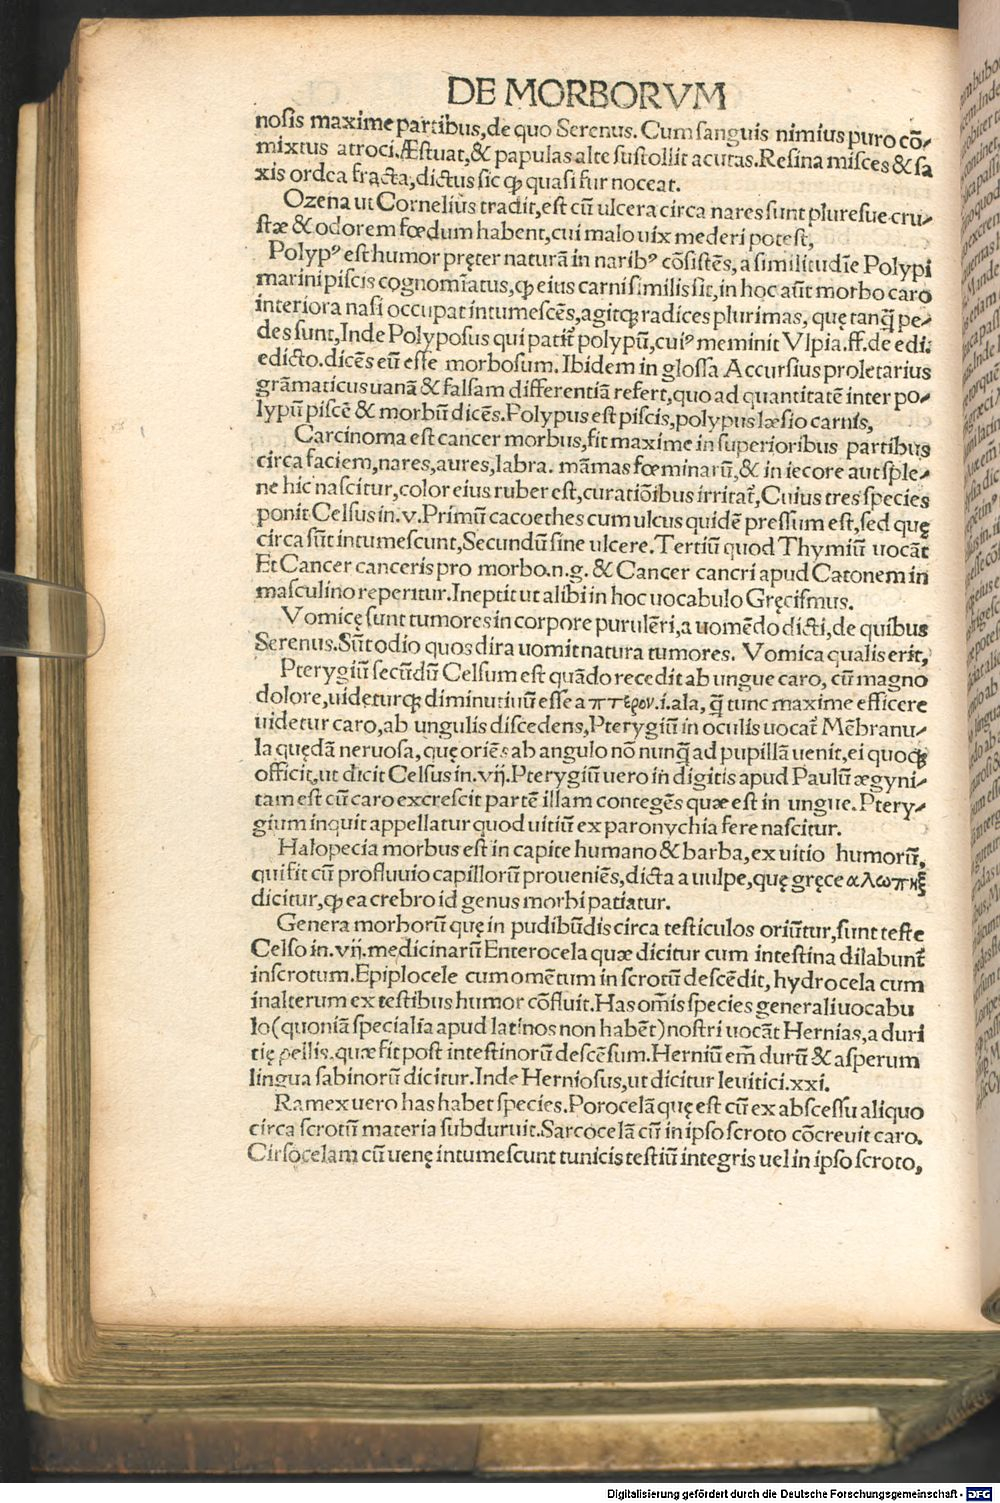 DE MORBORVM
nosis maxime partibus,de quo Serenus. Cum sanguis nimius puro cõ-
mixtus atroci.Æstuat,& papulas alte sustollit acutas.Resina misces & sa
xis ordea fracta,dictus sic ꝙ quasi fur noceat.
Ozena ut Cornelius tradit,est cũ ulcera circa nares sunt pluresue cru-
stæ & odorem fœdum habent,cui malo uix mederi potest,
Polypꝰ est humor pręter naturã in naribꝰ cõsistẽs, a similitudĩe Polypi
marini piscis cognomĩatus,ꝙ eius carni similis sit,in hoc aũt morbo caro
interiora nasi occupat intumescẽs,agitꝙ radices plurimas, quę tanq̃ pe-
des sunt,Inde Polyposus qui patit̃ polypũ,cuiꝰ meminit Vlpia.ff.de edi.
edicto.dicẽs eũ esse morbosum. Ibidem in glossa Accursius proletarius
grãmaticus uanã & falsam differentiã refert,quo ad quantitatẽ inter po-
lypũ piscẽ & morbũ dicẽs.Polypus est piscis,polypus læsio carnis,
Carcinoma est cancer morbus,fit maxime in superioribus partibus
circa faciem,nares,aures,labra. mãmas fœminarũ,& in iecore aut sple-
ne hic nascitur,color eius ruber est,curatiõibus irritat̃,Cuius tres species
ponit Celsus in.v.Primũ cacoethes cum ulcus quidẽ pressum est,sed quę
circa sũt intumescunt,Secundũ sine ulcere.Tertiũ quod Thymiũ uocãt
Et Cancer canceris pro morbo.n.g. & Cancer cancri apud Catonem in
masculino reperitur.Ineptit ut alibi in hoc uocabulo Gręcismus.
Vomicę sunt tumores in corpore purulẽti,a uomẽdo dicti,de quibus
Serenus.Sũt odio quos dira uomit natura tumores. Vomica qualis erit,
Pterygiũ secũdũ Celsum est quãdo recedit ab ungue caro, cũ magno
dolore,uideturꝙ diminutiuũ esse a πτερον.i.ala, q̃ tunc maxime efficere
uidetur caro,ab ungulis discedens,Pterygiũ in oculis uocat̃ Mẽbranu-
la quędã neruosa,quę oriẽs ab angulo nõ nunq̃ ad pupillã uenit,ei quoꝙ
officit,ut dicit Celsus in.vij.Pterygiũ uero in digitis apud Paulũ ægyni-
tam est cũ caro excrescit partẽ illam contegẽs quæ est in ungue.Ptery-
gium inquit appellatur quod uitiũ ex paronychia fere nascitur.
Halopecia morbus est in capite humano & barba,ex uitio humorũ,
qui fit cũ profluuio capillorũ proueniẽs,dicta a uulpe,quę gręce αλωπηξ
dicitur,ꝙ ea crebro id genus morbi patiatur.
Genera morborũ quę in pudibũdis circa testiculos oriũtur,sunt teste
Celso in.vij.medicinarũ Enterocela quæ dicitur cum intestina dilabunt̃
in scrotum.Epiplocele cum omẽtum in scrotũ descẽdit, hydrocela cum
in alterum ex testibus humor cõfluit.Has om̃is species generali uocabu
lo(quoniã specialia apud latinos non habẽt)nostri uocãt Hernias,a duri
tię pellis.quæ fit post intestinorũ descẽsum.Herniũ em̃ durũ & asperum
lingua sabinorũ dicitur.Inde Herniosus,ut dicitur leuitici.xxi.
Ramex uero has habet species.Porocelã quę est cũ ex abscessu aliquo
circa scrotũ materia subduruit.Sarcocelã cũ in ipso scroto cõcreuit caro.
Cirsocelam cũ uenę intumescunt tunicis testiũ integris uel in ipso scroto,
Digitalisierung gefördert durch die Deutsche Forschungsgemeinschaft - DFG